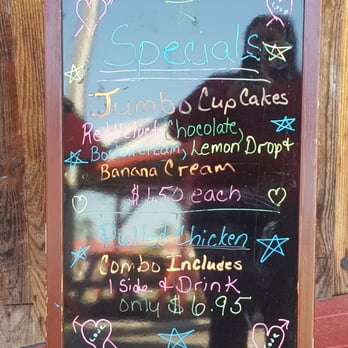 Specials
Jumbo Cup Cakes
Red Velvet, Chocolate,
Boston Cream, Lemon Drop &
Banana Cream
$1.50 each
Pulled Chicken
Combo Includes
1 Side & Drink
only $6.95